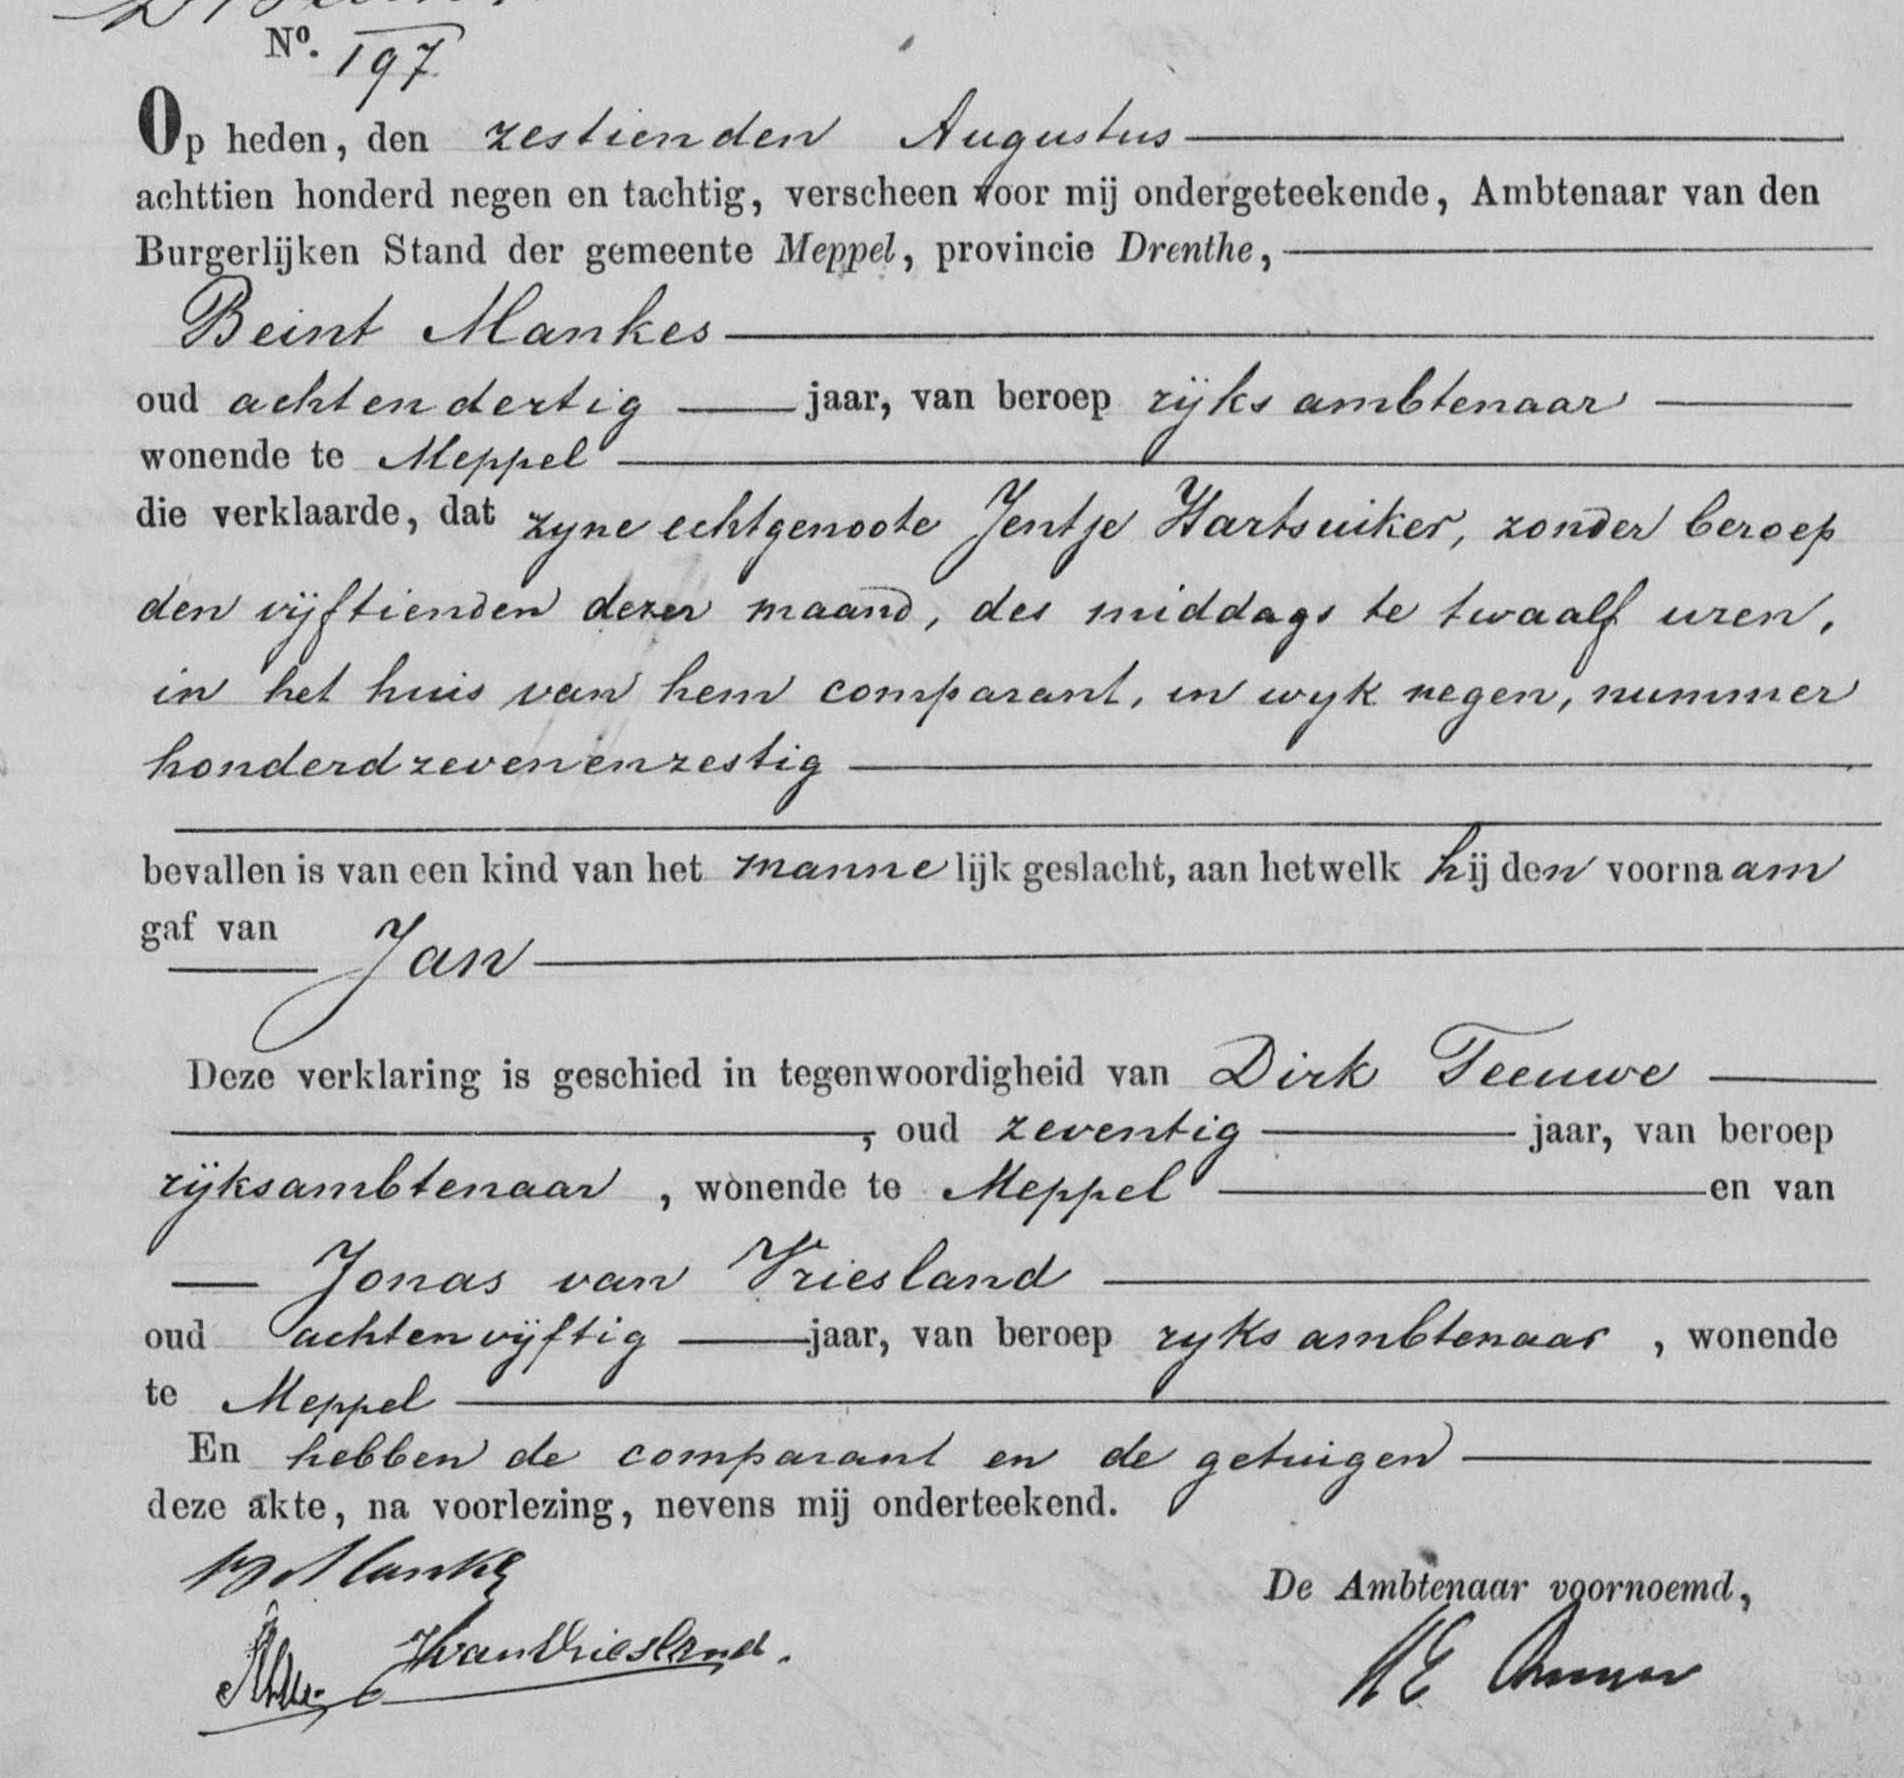 No. 197
Op heden, den zestienden Augustus
achttien honderd negen en tachtig, verscheen voor mij ondergeteekende, Ambtenaar van den
Burgerlijken Stand der gemeente Meppel, provincie Drenthe,
Beint Mankes
oud achtendertig jaar, van beroep rijks ambtenaar
wonende te Meppel
die verklaarde, dat zyne echtgenoote Jentje Hartsuiker, zonder beroep
den vijftienden dezer maand, des middags te twaalf uren,
in het huis van hem comparant, in wyk negen, nummer
honderdzevenenzestig
bevallen is van een kind van het mannelijk geslacht, aan hetwelk hij den voornaam
gaf van Jan
Deze verklaring is geschied in tegenwoordigheid van Dirk Teeuwe
, oud zeventig jaar, van beroep
rijksambtenaar, wonende te Meppel en van
Jonas van Vriesland
oud achtenvijftig jaar, van beroep ryks ambtenaar, wonende
te Meppel
En hebben de comparant en de getuigen
deze akte, na voorlezing, nevens mij onderteekend.
B Mankes
De Ambtenaar voornoemd,
JvanVriesland.